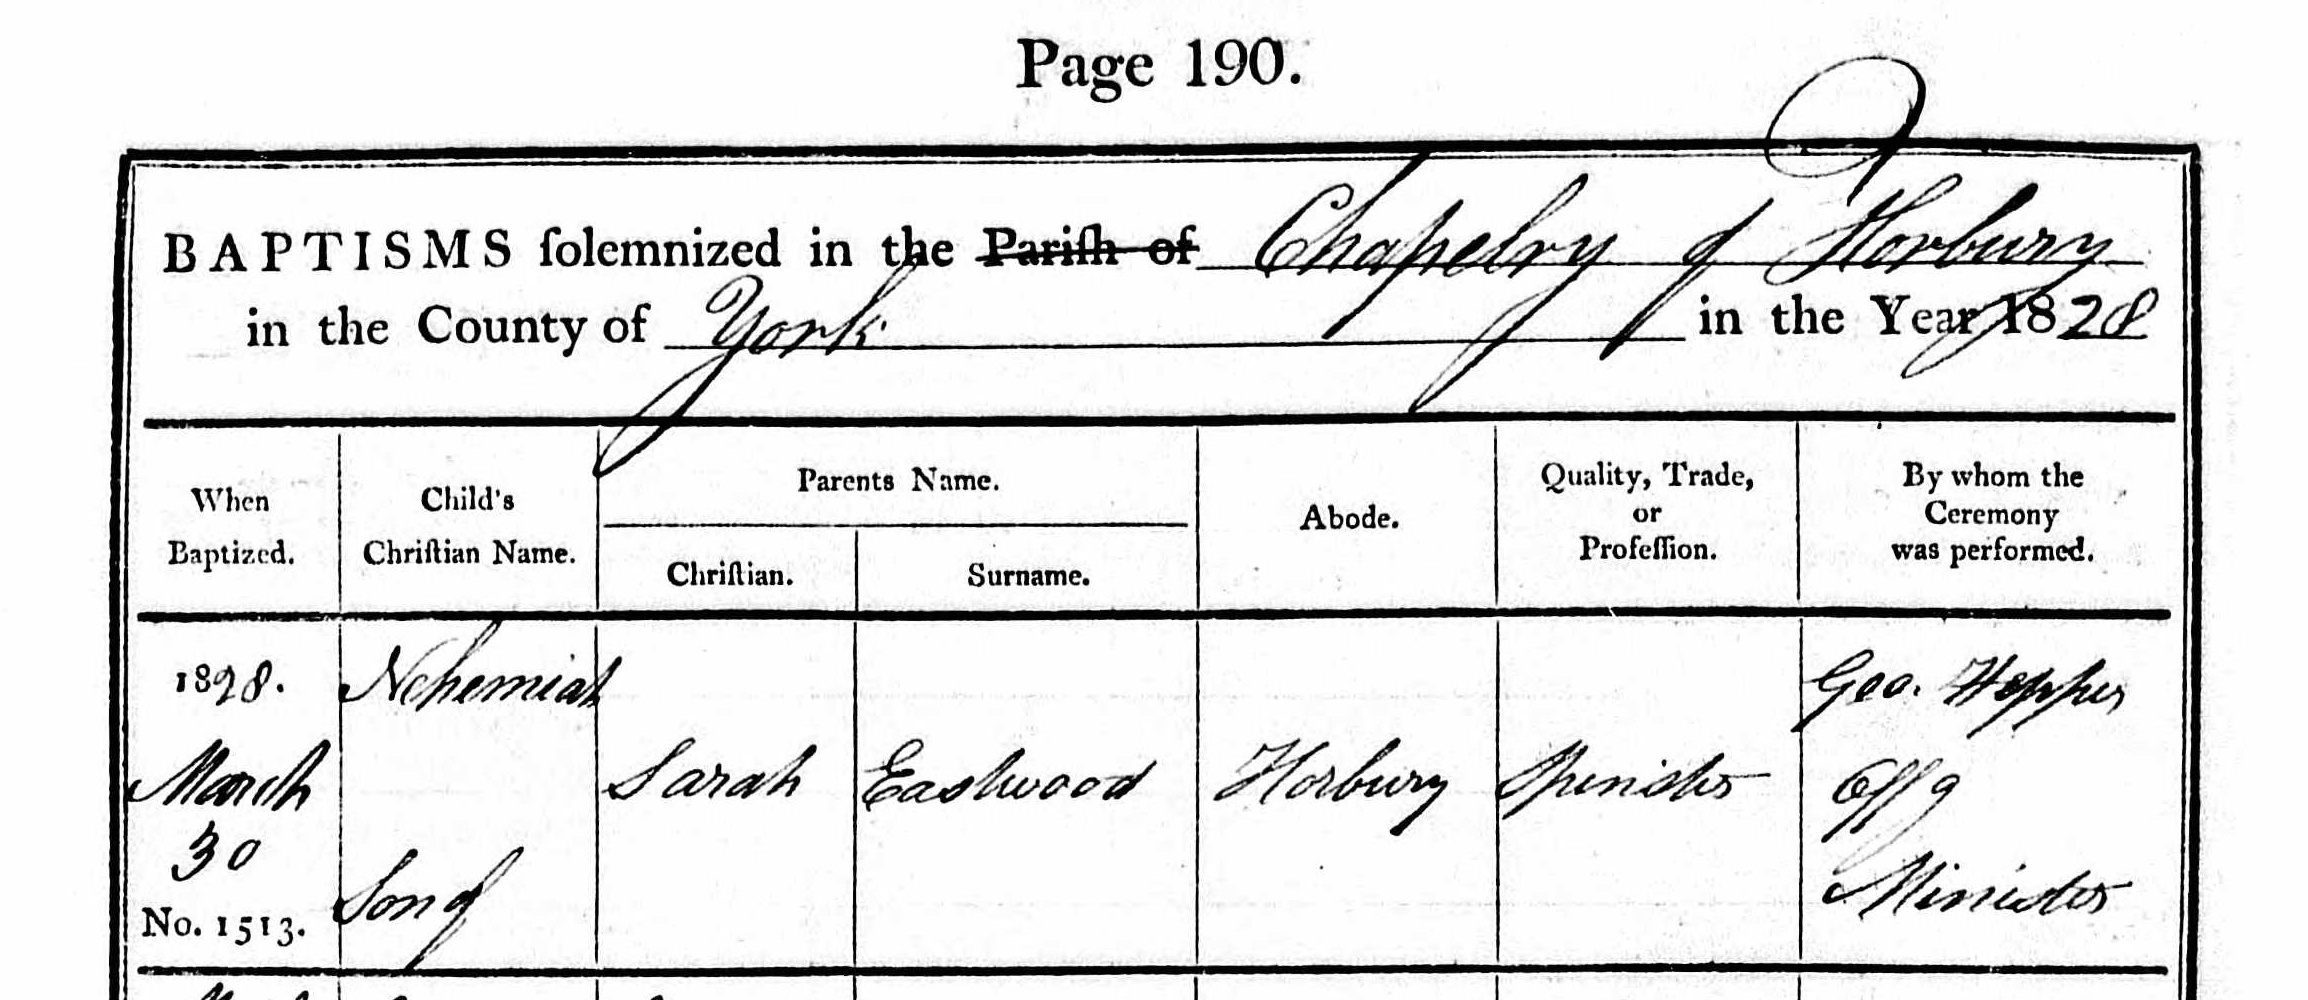 Page 190.
BAPTISMS ſolemnized in the Pariſh of Chapelry of Horbury
in the County of York in the Year 1828
When
Baptized.
Child's
Chriſtian Name.
Parents Name.
Chriſtian.
Surname.
Abode.
Quality, Trade,
or
Profeſſion.
By whom the
Ceremony
was performed.
1828.
March
30
No. 1513.
Nehemiah
Son of
Sarah
Eastwood
Horbury
Spinster
Geo. Hepper
Offg
Minister